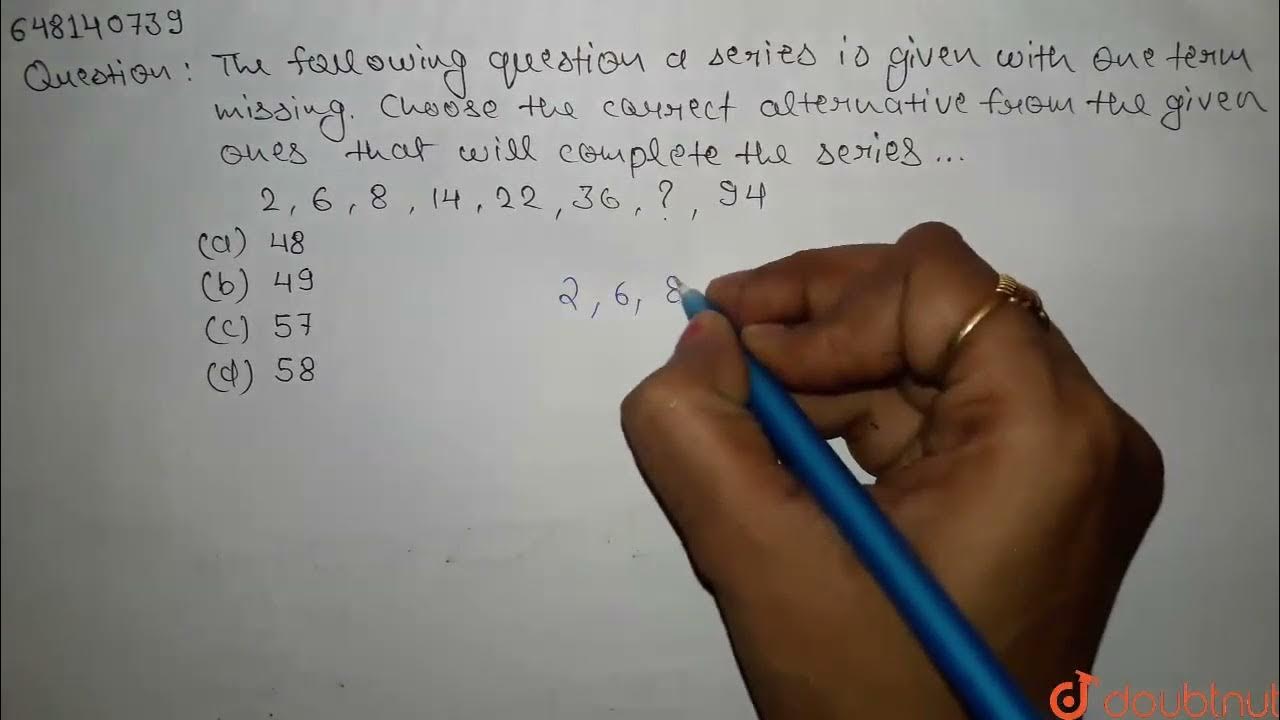 648140739
Question: The following question a series is given with one term
missing. Choose the correct alternative from the given
ones that will complete the series...
2, 6, 8, 14, 22, 36, ?, 94
(a) 48
(b) 49
(c) 57
(d) 58
2, 6, 8
doubtnut